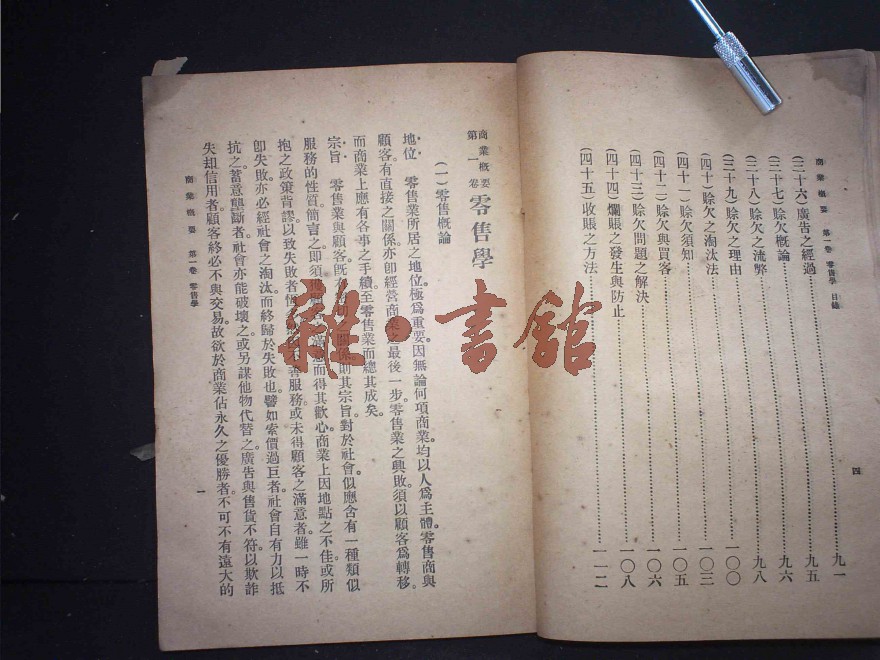 商業概要 第一卷 零售學 目錄
(三十六)廣告之經過 九一
(三十七)賒欠概論 九五
(三十八)賒欠之流弊 九六
(三十九)賒欠之理由 九八
(四十)賒欠之淘汰法 一〇〇
(四十一)賒欠須知 一〇三
(四十二)賒欠與買客 一〇五
(四十三)賒欠問題之解決 一〇六
(四十四)爛賬之發生與防止 一〇八
(四十五)收賬之方法 一一二
四
商業概要
第一卷 零售學
(一)零售概論
地位 零售業所居之地位。極爲重要。因無論何項商業。均以人爲主體。零售商與
顧客。有直接之關係。亦卽經營商業之最後一步。零售業之興敗。須以顧客爲轉移。
而商業上應有各事之手續。至零售業而總其成矣。
宗旨 零售業與顧客。旣有 關係。則其宗旨。對於社會。似應含有一種類似
服務的性質。簡言之。卽須 滿意。而得其歡心。商業上因地點之不佳。或所
抱之政策背謬。以致失敗者恆 不善服務。或未得顧客之滿意者。雖一時不
卽失敗。亦必經社會之淘汰。而終歸於失敗也。譬如索價過巨者。社會自有力以抵
抗之。蓄意壟斷者。社會亦能破壞之。或另謀他物代替之。廣告與售貨不符。以欺詐
失却信用者。顧客終必不與交易。故欲於商業佔永久之優勝者。不可不有遠大的
商業概要 第一卷 零售學
一
雜·書館